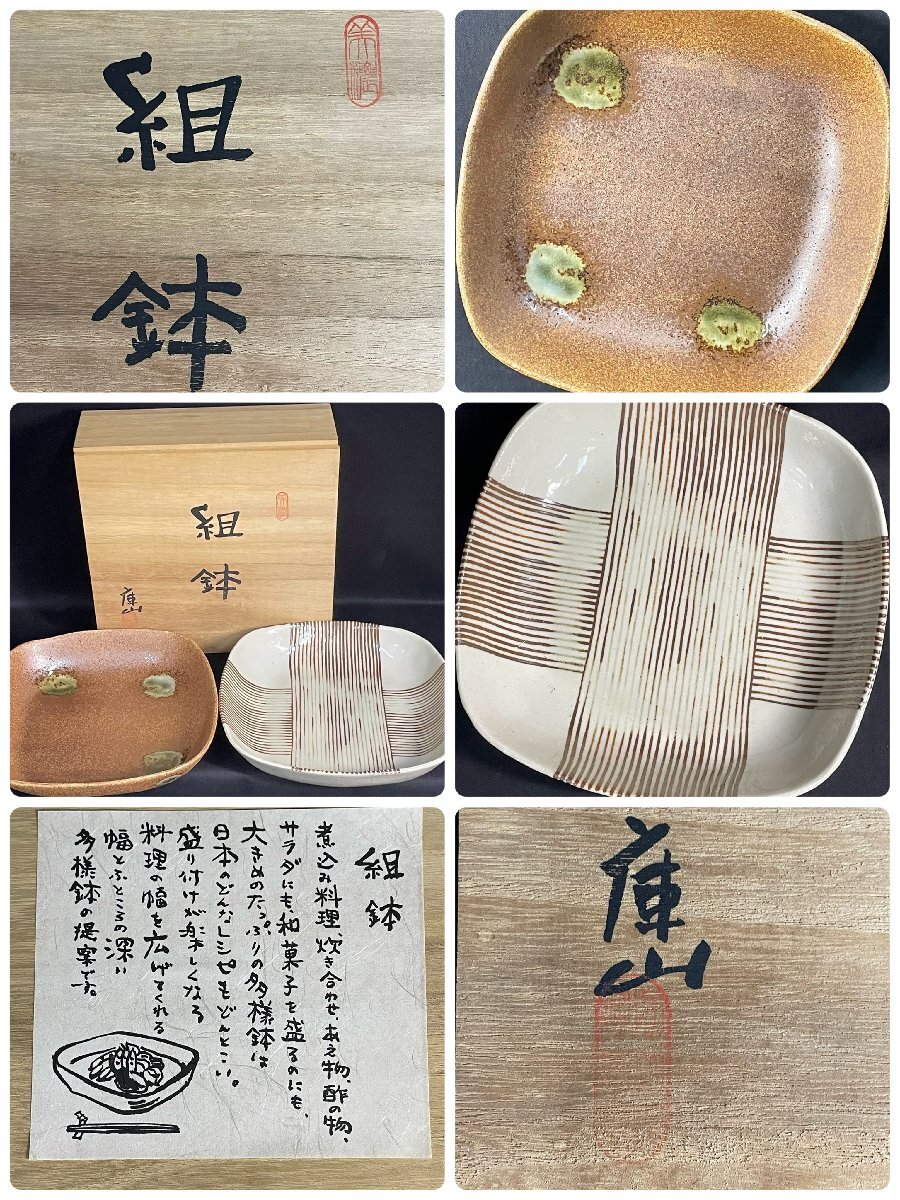 組
鉢
組
鉢
庫山
組鉢
煮込み料理、炊き合わせ、あえ物、酢の物、
サラダにも和菓子を盛るのにも、
大きめのたっぷりの多様鉢は
日本のどんなレシピもどんとこい。
盛り付けが楽しくなる
料理の幅を広げてくれる
幅とふところの深い
多様鉢の提案です。
庫山